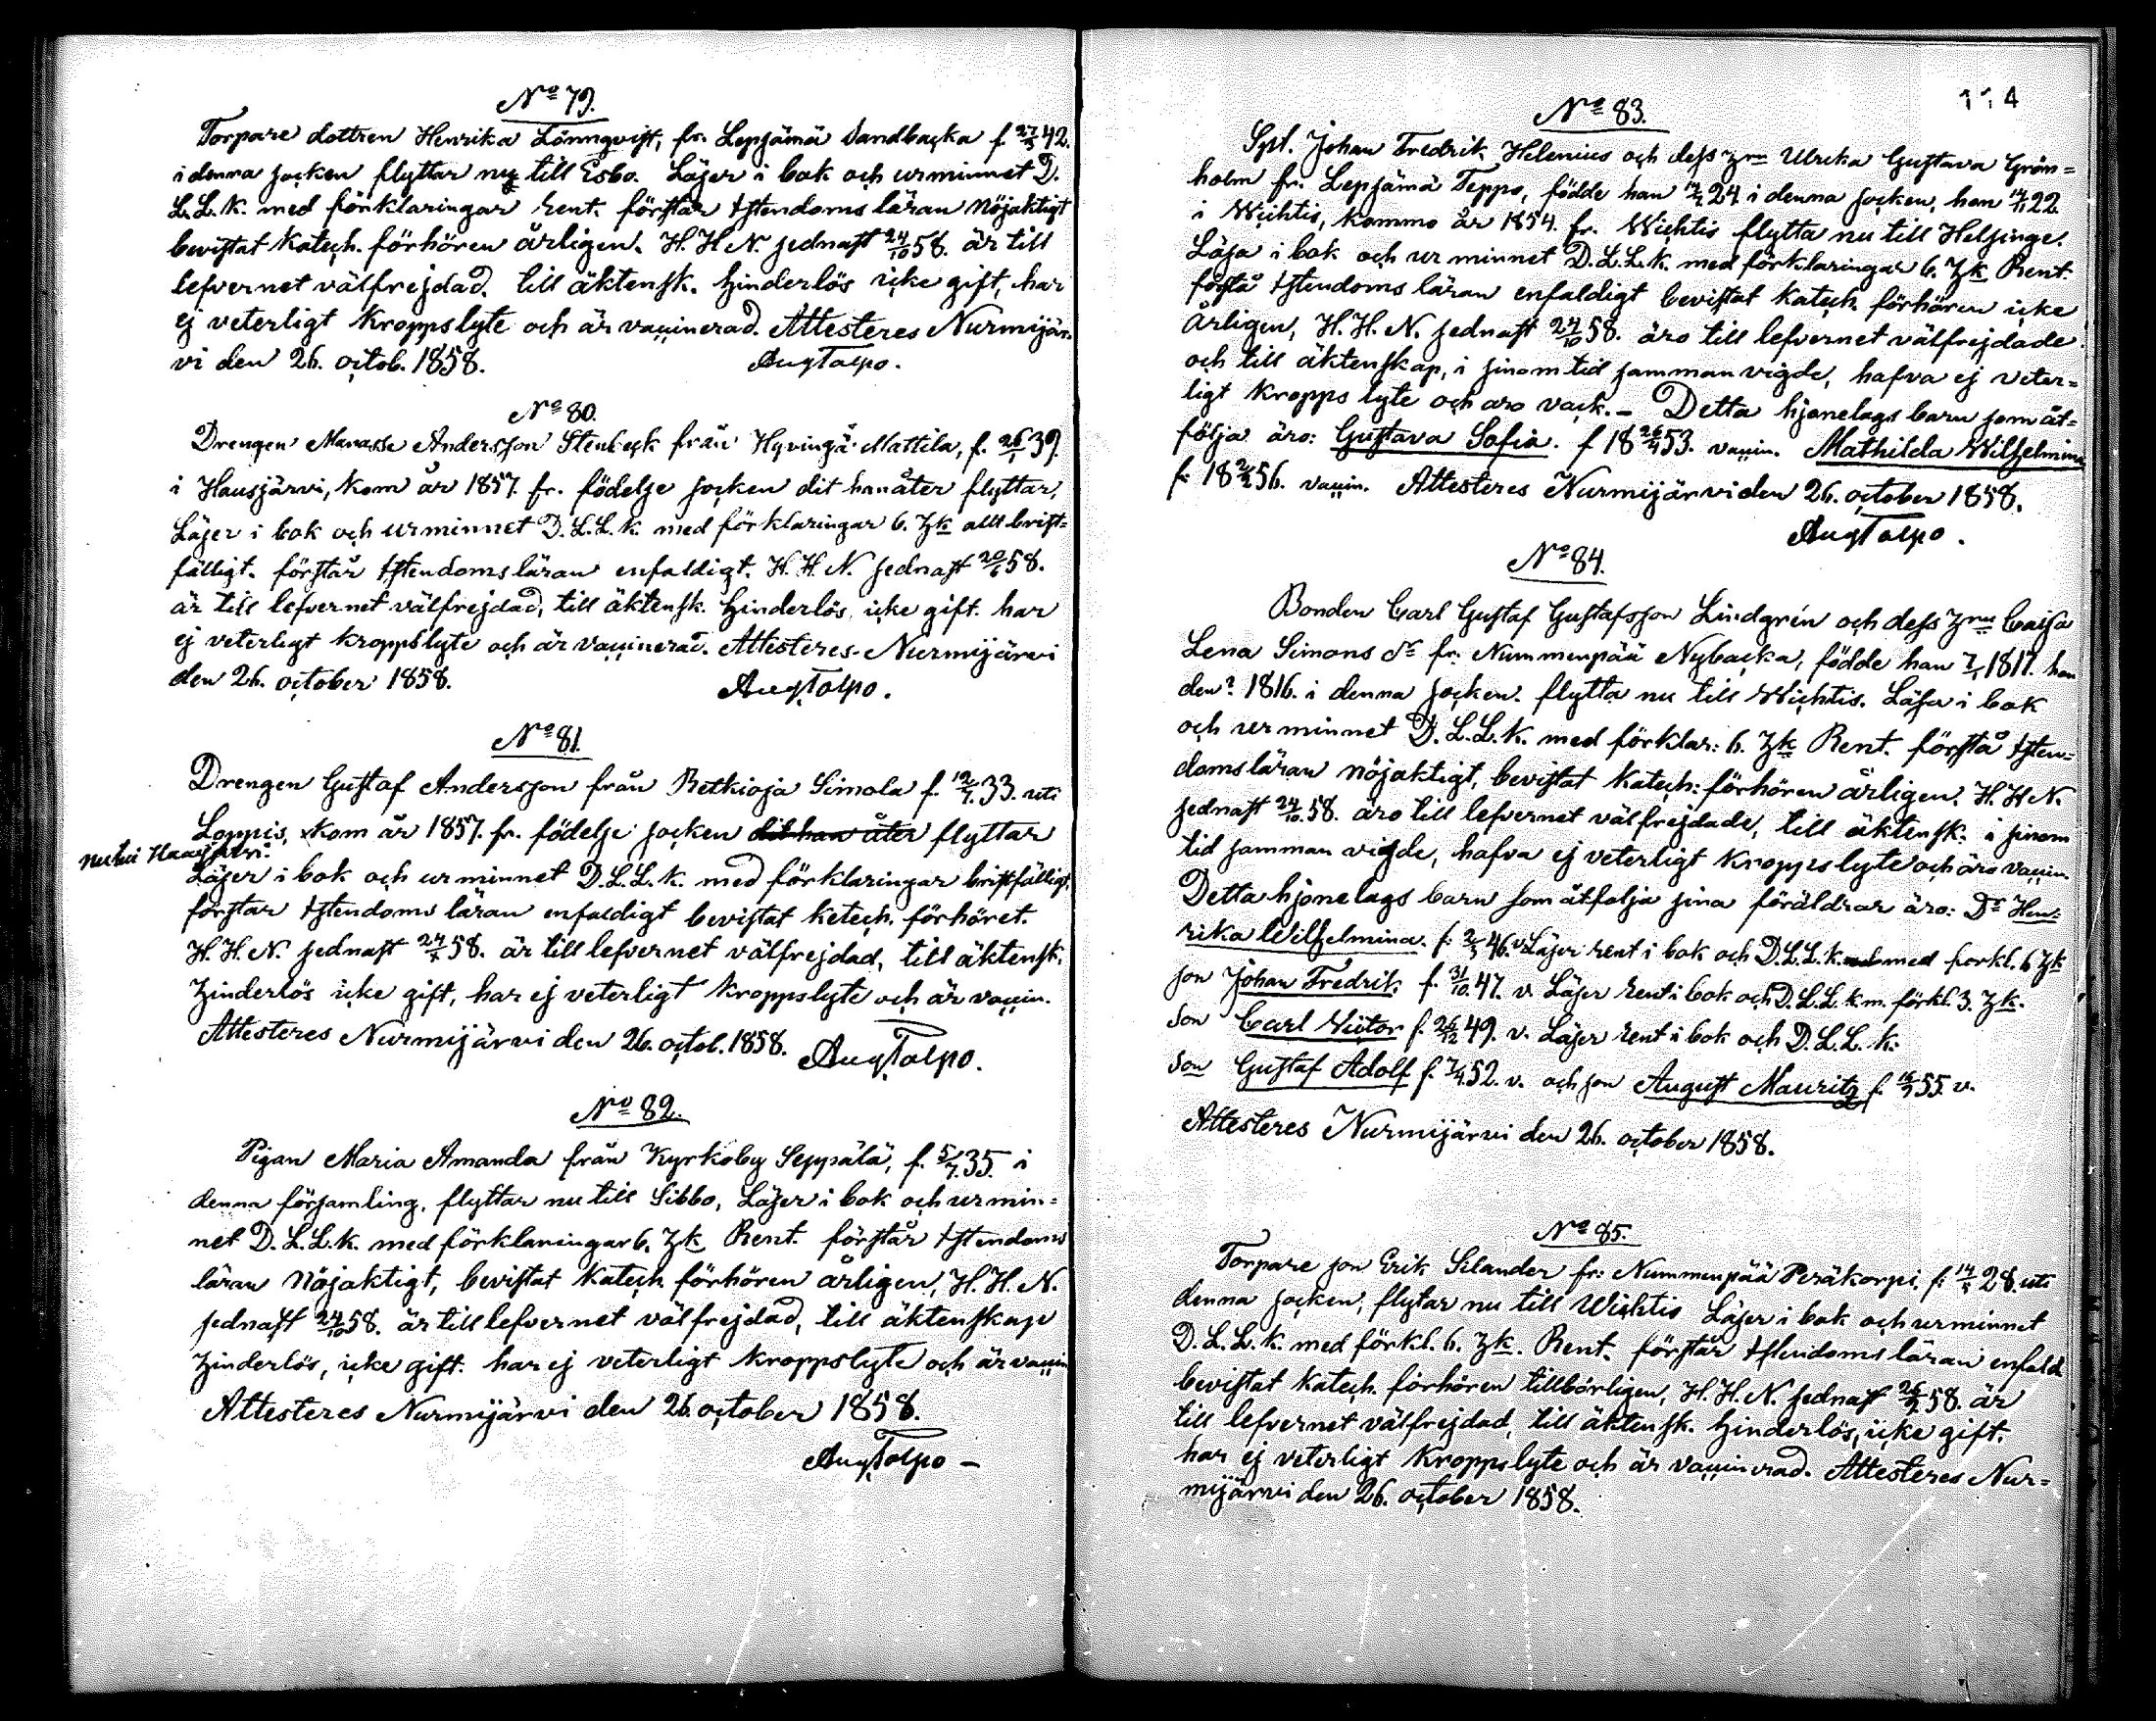 No 79.
Torpare dottren Henrika Lönnqvist, fr. Lepsämä Sandbacka f. 27/5 42.
i denna socken flyttar nu till Esbo. Läser i bok och urminnet D.
L.L.K. med förklaringar rent. förstår †stendoms läran nöjaktigt
bevistat Katech. förhören årligen. H. H N. sednast 24/10 58. är till
lefvernet välfrejdad. till äktensk. hinderlös icke gift, har
ej veterligt Kroppslyte och är vaccinerad. Attesteres Nurmijär-
vi den 26. octob. 1858.
Aug Talpo.
No 80.
Drengen Manasse Andersson Stenbeck från Hyvingä Mattila, f. 26/1 39.
i Hausjärvi, kom år 1857. fr. födelse socken dit han åter flyttar,
Läser i bok och urminnet D. L. L. K. med förklaringar 6. Hk allt brist=
fälligt. förstår †stendomsläran enfaldigt. H. H. N. sednast 20/6 58.
är till lefvernet välfrejdad, till äktensk. hinderlös, icke gift. har
ej veterligt kroppslyte och är vaccinerad. Attesteres Nurmijärvi
den 26. october 1858.
Aug Talpo.
No 81.
Drengen Gustaf Andersson från Retkioja Simola f. 12/7 33. uti
Loppis, kom år 1857. fr. födelse socken dit han åter flyttar
nu till Hausjärvi.
Läser i bok och urminnet D.L.L.K. med förklaringar bristfälligt.
förstår †stendoms läran enfaldigt bevistat ketech. förhöret.
H. H. N. sednast 24/ 58. är till lefvernet välfrejdad, till äktensk.
hinderlös icke gift, har ej veterligt kroppslyte och är vaccin.
Attesteres Nurmijärvi den 26. octob. 1858.
Aug Talpo.
No 82.
Pigan Maria Amanda från Kyrkoby Seppälä, f. 5/7 35. i
denna församling, flyttar nu till Sibbo, Läser i bok och urmin=
net D. L.L.K. med förklaringar 6. Hk Rent. förstår †stendoms
läran Nöjaktigt, bevistat Katech. förhören årligen, H. H. N.
sednast 24/10 58. är till lefvernet välfrejdad, till äktenskap
hinderlös, icke gift. har ej veterligt kroppslyte och är vaccin
Attesteres Nurmijärvi den 26. october 1858.
Aug Talpo –
114
No 83.
Spt. Johan Fredrik Helenius och dess Hru Ulrika Gustava Grön=
holm fr. Lepsämä Teppo, födde han 24 i denna socken, hon 22
i Wichtis, kommo år 1854. fr. Wichtis flytta nu till Helsinge.
Läsa i bok och ur minnet D.L.L.K. med förklaringar 6. Hk Rent.
förstå †stendoms läran enfaldigt bevistat Katech. förhören icke
årligen, H. H. N. sednast 24/10 58. äro till lefvernet välfrejdade
och till äktenskap, i sinom tid samman vigde, hafva ej veter=
ligt kropps lyte och äro vack. – Detta hjonelags barn som åt=
följa äro: Gustava Sofia. f 18 26/4 53. vaccin. Mathilda Wilhelmina
f. 18 56. vaccin. Attesteres Nurmijärvi den 26. october 1858.
Aug Talpo.
No 84.
Bonden Carl Gustaf Gustafsson Lindgrén och dess Hru Caisa
Lena Simons dr fr. Nummenpää Nybacka, födde han 7/1 1817. hon
den ? 1816. i denna socken. flytta nu till Wichtis. Läsa i bok
och urminnet D. L.L.K. med förklar: 6. Hk Rent. förstå †sten=
domsläran nöjaktigt, bevistat Katech: förhören årligen. H. H N.
sednast 24/10 58. äro till lefvernet välfrejdade, till äktensk. i sinom
tid samman vigde, hafva ej veterligt kroppslyte och äro vaccin.
Detta hjonelags barn som åtfölja sina föräldrar äro: Dr Hen=
rika Wilhelmina. f: 2/3 46. v. Läser rent i bok och D.L.L.K. med forkl. 6 Hk
son Johan Fredrik f. 31/10 47. v. Läser rent i bok och D.L.L.K. m. förkl. 3. Hk.
Son Carl Victor f. 26/12 49. v. Läser rent i bok och D.L.L.K.
Son Gustaf Adolf f. 7/4 52. v. och son August Mauritz f. 55. v.
Attesteres Nurmijärvi den 26. october 1858.
No 85.
Torpare son Erik Silander fr: Nummenpää Peräkorpi. f: 28. uti
denna socken, flytar nu till Wichtis Läser i bok och urminnet
D. L. L. K. med förkl. 6. Hk. Rent. förstår †stendoms läran enfald.
bevistat Katech. förhören tillbörligen, H. H. N. sednast 58. är
till lefvernet välfrejdad, till äktensk. hinderlös, icke gift.
har ej veterligt kroppslyte och är vaccinerad. Attesteres Nur=
mijärvi den 26. october 1858.